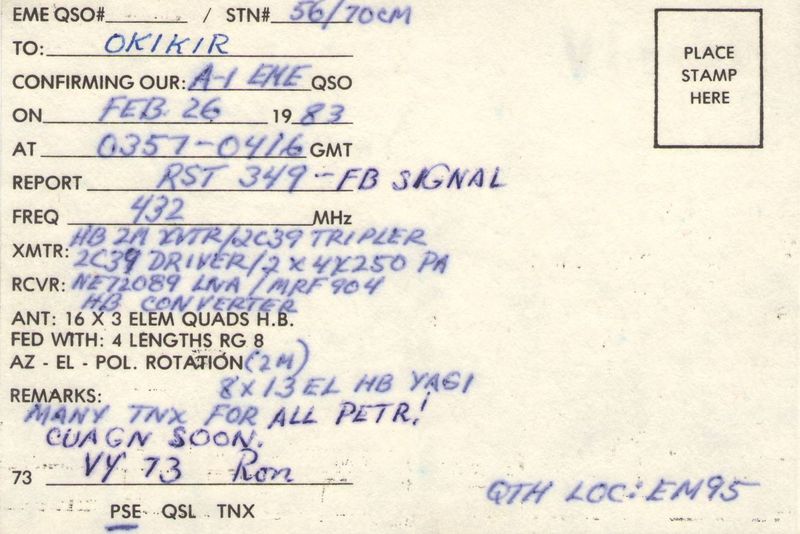 EME QSO# / STN# 56/70CM
TO: OK1KIR
CONFIRMING OUR: A-1 EME QSO
ON FEB. 26 19 83
AT 0357-0416 GMT
REPORT RST 349 - FB SIGNAL
FREQ 432 MHz
XMTR: HB 2M XVTR/2C39 TRIPLER
2C39 DRIVER/2 X 4X250 PA
RCVR: NE72089 LNA/MRF904
HB CONVERTER
ANT: 16 X 3 ELEM QUADS H.B.
FED WITH: 4 LENGTHS RG 8
AZ - EL - POL. ROTATION (2M)
8X13 EL HB YAGI
REMARKS:
MANY TNX FOR ALL PETR!
CUAGN SOON.
73 VY 73 Ron
PSE QSL TNX
QTH LOC: EM95
PLACE
STAMP
HERE